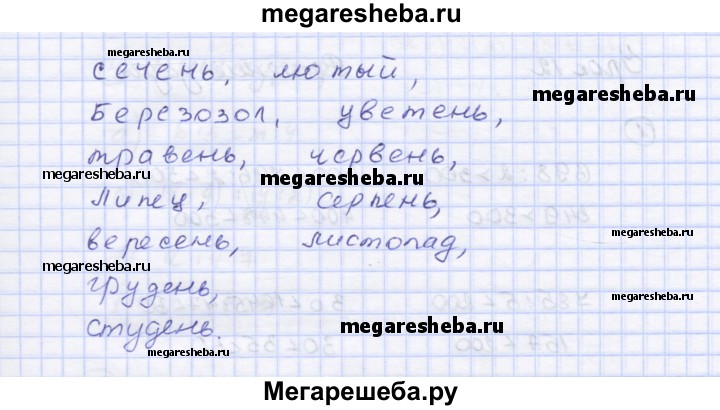 megaresheba.ru
megaresheba.ru
сечень, лютый,
megaresheba.ru
Березозол, цветень,
травень, червень,
megaresheba.ru megaresheba.ru
Липец, серпень,
вересень, листопад,
megaresheba.ru
грудень,
студень.
megaresheba.ru
megaresheba.ru
Мегарешеба.ру